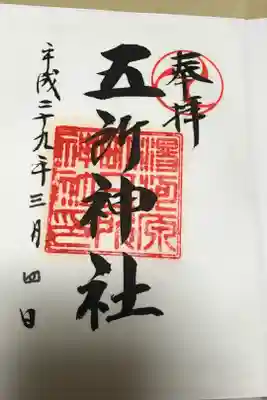 奉拝
五所神社
平成二十九年三月四日